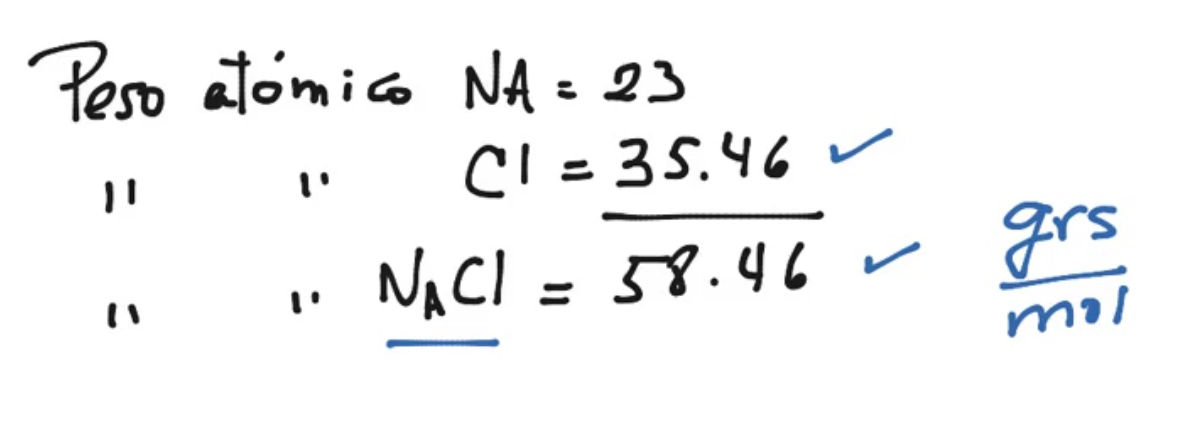 Peso atómico NA = 23
" " Cl = 35.46 ✓
" " NACl = 58.46 ✓
grs
mol